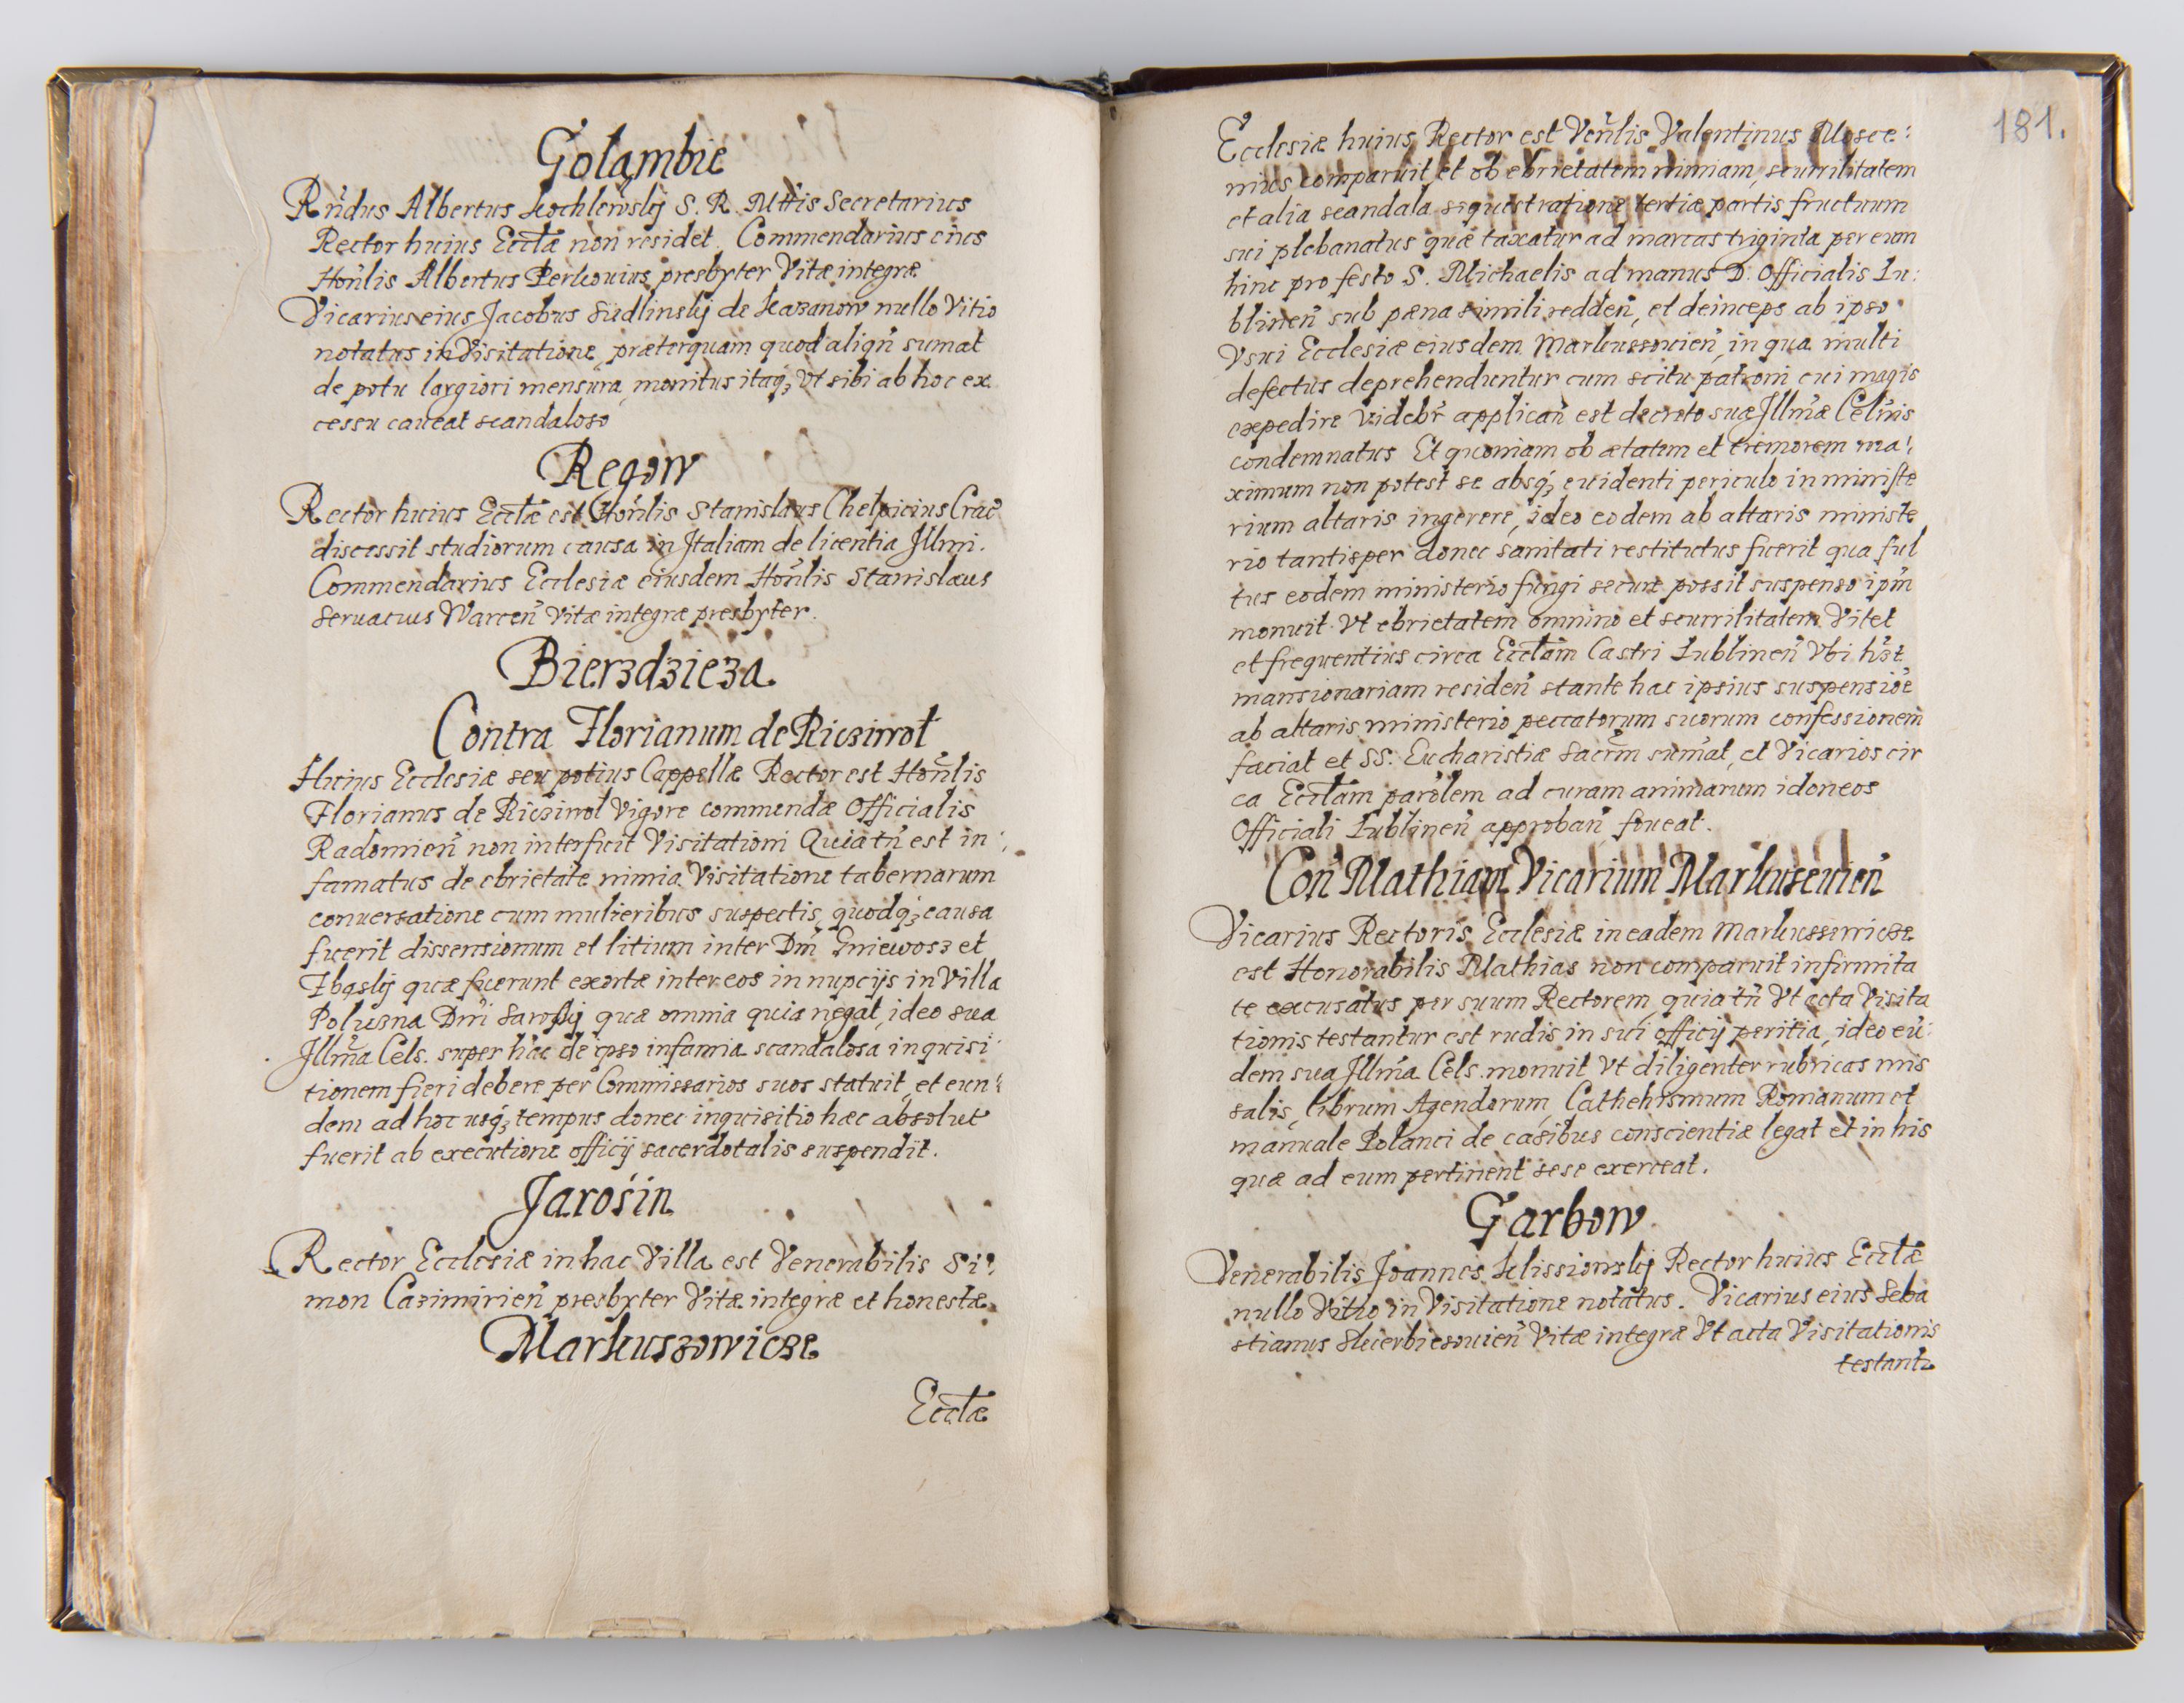 Golambie
Rńdus Albertus Kochlewskij S. R. Mttis Secretarius
Rector huius Ecctæ non residet. Commendarius eius
Honlis Albertus Perkouius presbyter Vitæ integræ
Vicarius eius Jacobus Sudlinskij de Kazanow nullo Vitio
notatus in Visitatione, præterquam quod aliqn sumat
de potu largiori mensura, monitus itaq3 Vt sibi ab hoc ex
cessu caueat scandaloso
Regow
Rector huius Ecctæ est Honlis Stanislaus Chelpicius Crac
discessit studiorum causa in Italiam de licentia Illmi.
Commendarius Ecclesiæ eiusdem Honlis Stanislaus
Seruatius Warcen Vitæ integræ presbyter.
Bierzdzieza
Contra Florianum de Riczinol
Huius Ecclesiæ seu potius Cappellæ Rector est Honlis
Florianus de Riczinol Vigore commendæ Officialis
Radomien non interfuit Visitationi Quia tn est in:
famatus de ebrietate nimia Visitatione tabernarum
conuersatione cum mulieribus suspectis, quodq3 causa
fuerit dissensionum et litium inter Dm Gniewosz et
Zbąskij quæ fuerunt exortæ inter eos in nupcijs in Villa
Polurzna Dni quæ omnia quia negat, ideo sua
Illma Cels. super hac de ipso infamia scandalosa inquisi:
tionem fieri debere per Commissarios suos statuit, et eun:
dem ad hoc usq3 tempus donec inquisitio hæc absolut
fuerit ab executione officij sacerdotalis suspendit.
Jarosin
Rector Ecclesiæ in hac Villa est Venerabilis Si:
mon Cazimirien presbyter Vitæ integræ et honestæ.
Markuszowicze
Ecctæ
181.
Ecclesiæ huius Rector est Venlis Valentinus Mosce:
nius comparuit, et ob ebrietatem nimiam, scurrilitatem
et alia scandala sequestratione tertiæ partis fructuum
sui plebanatus quæ taxatur ad marcas triginta per eum
hinc pro festo S. Michaelis ad manus D. Officialis Lu:
blinen sub pæna simili redden, et deinceps ab ipso
Vsui Ecclesiæ eiusdem Markussouien, in qua multi
defectus deprehenduntur cum scitu patroni cui magis
expedire videbr applican est decreto suæ Illmæ Celnis
condemnatus Et quoniam ob ætatem et tremorem ma:
ximum non potest se absq3 euidenti periculo in ministe
rium altaris ingerere, ideo eodem ab altaris ministe
rio tantisper donec sanitati restitutus fuerit qua ful
tus eodem ministerio fungi secure possit suspenso ipm
monuit Vt ebrietatem omnino et scurrilitatem Vitet
et frequentius circa Ecctam Castri Lublinen Vbi hzt
mansionariam residen stante hac ipsius suspensioe
ab altaris ministerio peccatorum suorum confessionem
faciat et SS. Eucharistiæ Sacrm sumat, et Vicarios cir
ca Ecctam parolem ad curam animarum idoneos
Officiali Lublinen approban foueat.
Con Mathiam Vicarium Markuseuien
Vicarius Rectoris Ecclesiæ in eadem Markussewicze
est Honorabilis Mathias non comparuit infirmita
te excusatus per suum Rectorem, quia tn Vt acta Visita
tionis testantur est rudis in sui officij peritia, ideo eu:
dem sua Illma Cels. monuit Vt diligenter rubricas mis
salis, librum Agendorum, Cathehismum Romanum et
manuale Polanci de casibus conscientiæ legat et in his
quæ ad eum pertinent sese exerceat.
Garbow
Venerabilis Joannes Klissiowskij Rector huius Ecctæ
nullo Vitio in Visitatione notatus. Vicarius eius Seba
stianus Skierbiesouien Vitæ integræ Vt acta Visitationis
testantr